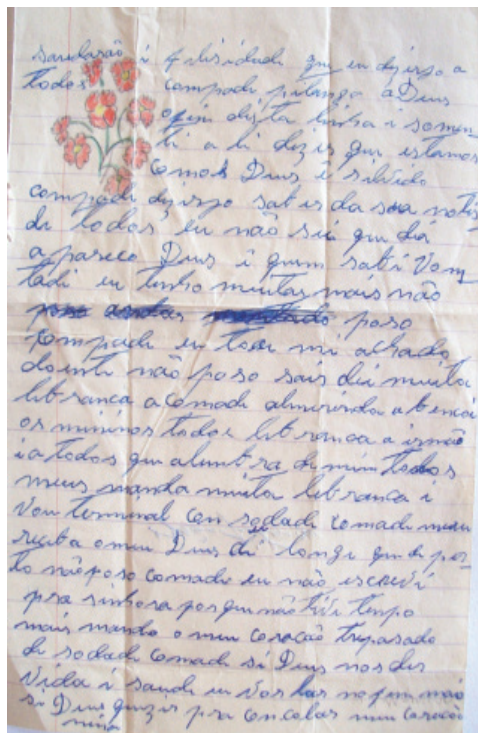 saudasão i filisidade que eu dezejo a
todos compadi pitanga a Deus
o fin dista linha i somen
ti a li dizer que estamos
como Deus é sirvido
compadi dezejo saber da sua notis
di todos eu não sei que dia
a pareco Deus é quem sabi vom
tadi eu tenho muitas mais não
poso
compadi eu tou mi achado
doenti não poso sair dei muita
librança a comadi almirinda a bencoi
os mininos todos librança a irmão
i a todos que alembra di mim todos
meus manda muita librança i
vou terminal con sodadi comadi meu
reseba o meu Deus di longi que di per
to não poso comadi eu não escrevi
pra sinhora porque não tivi tenpo
mais mando o meu coracão trepasado
di sodadi comadi si Deus nos der
vida i saudi eu vou las no fim
si Deus quizer pra concolar meu coracão